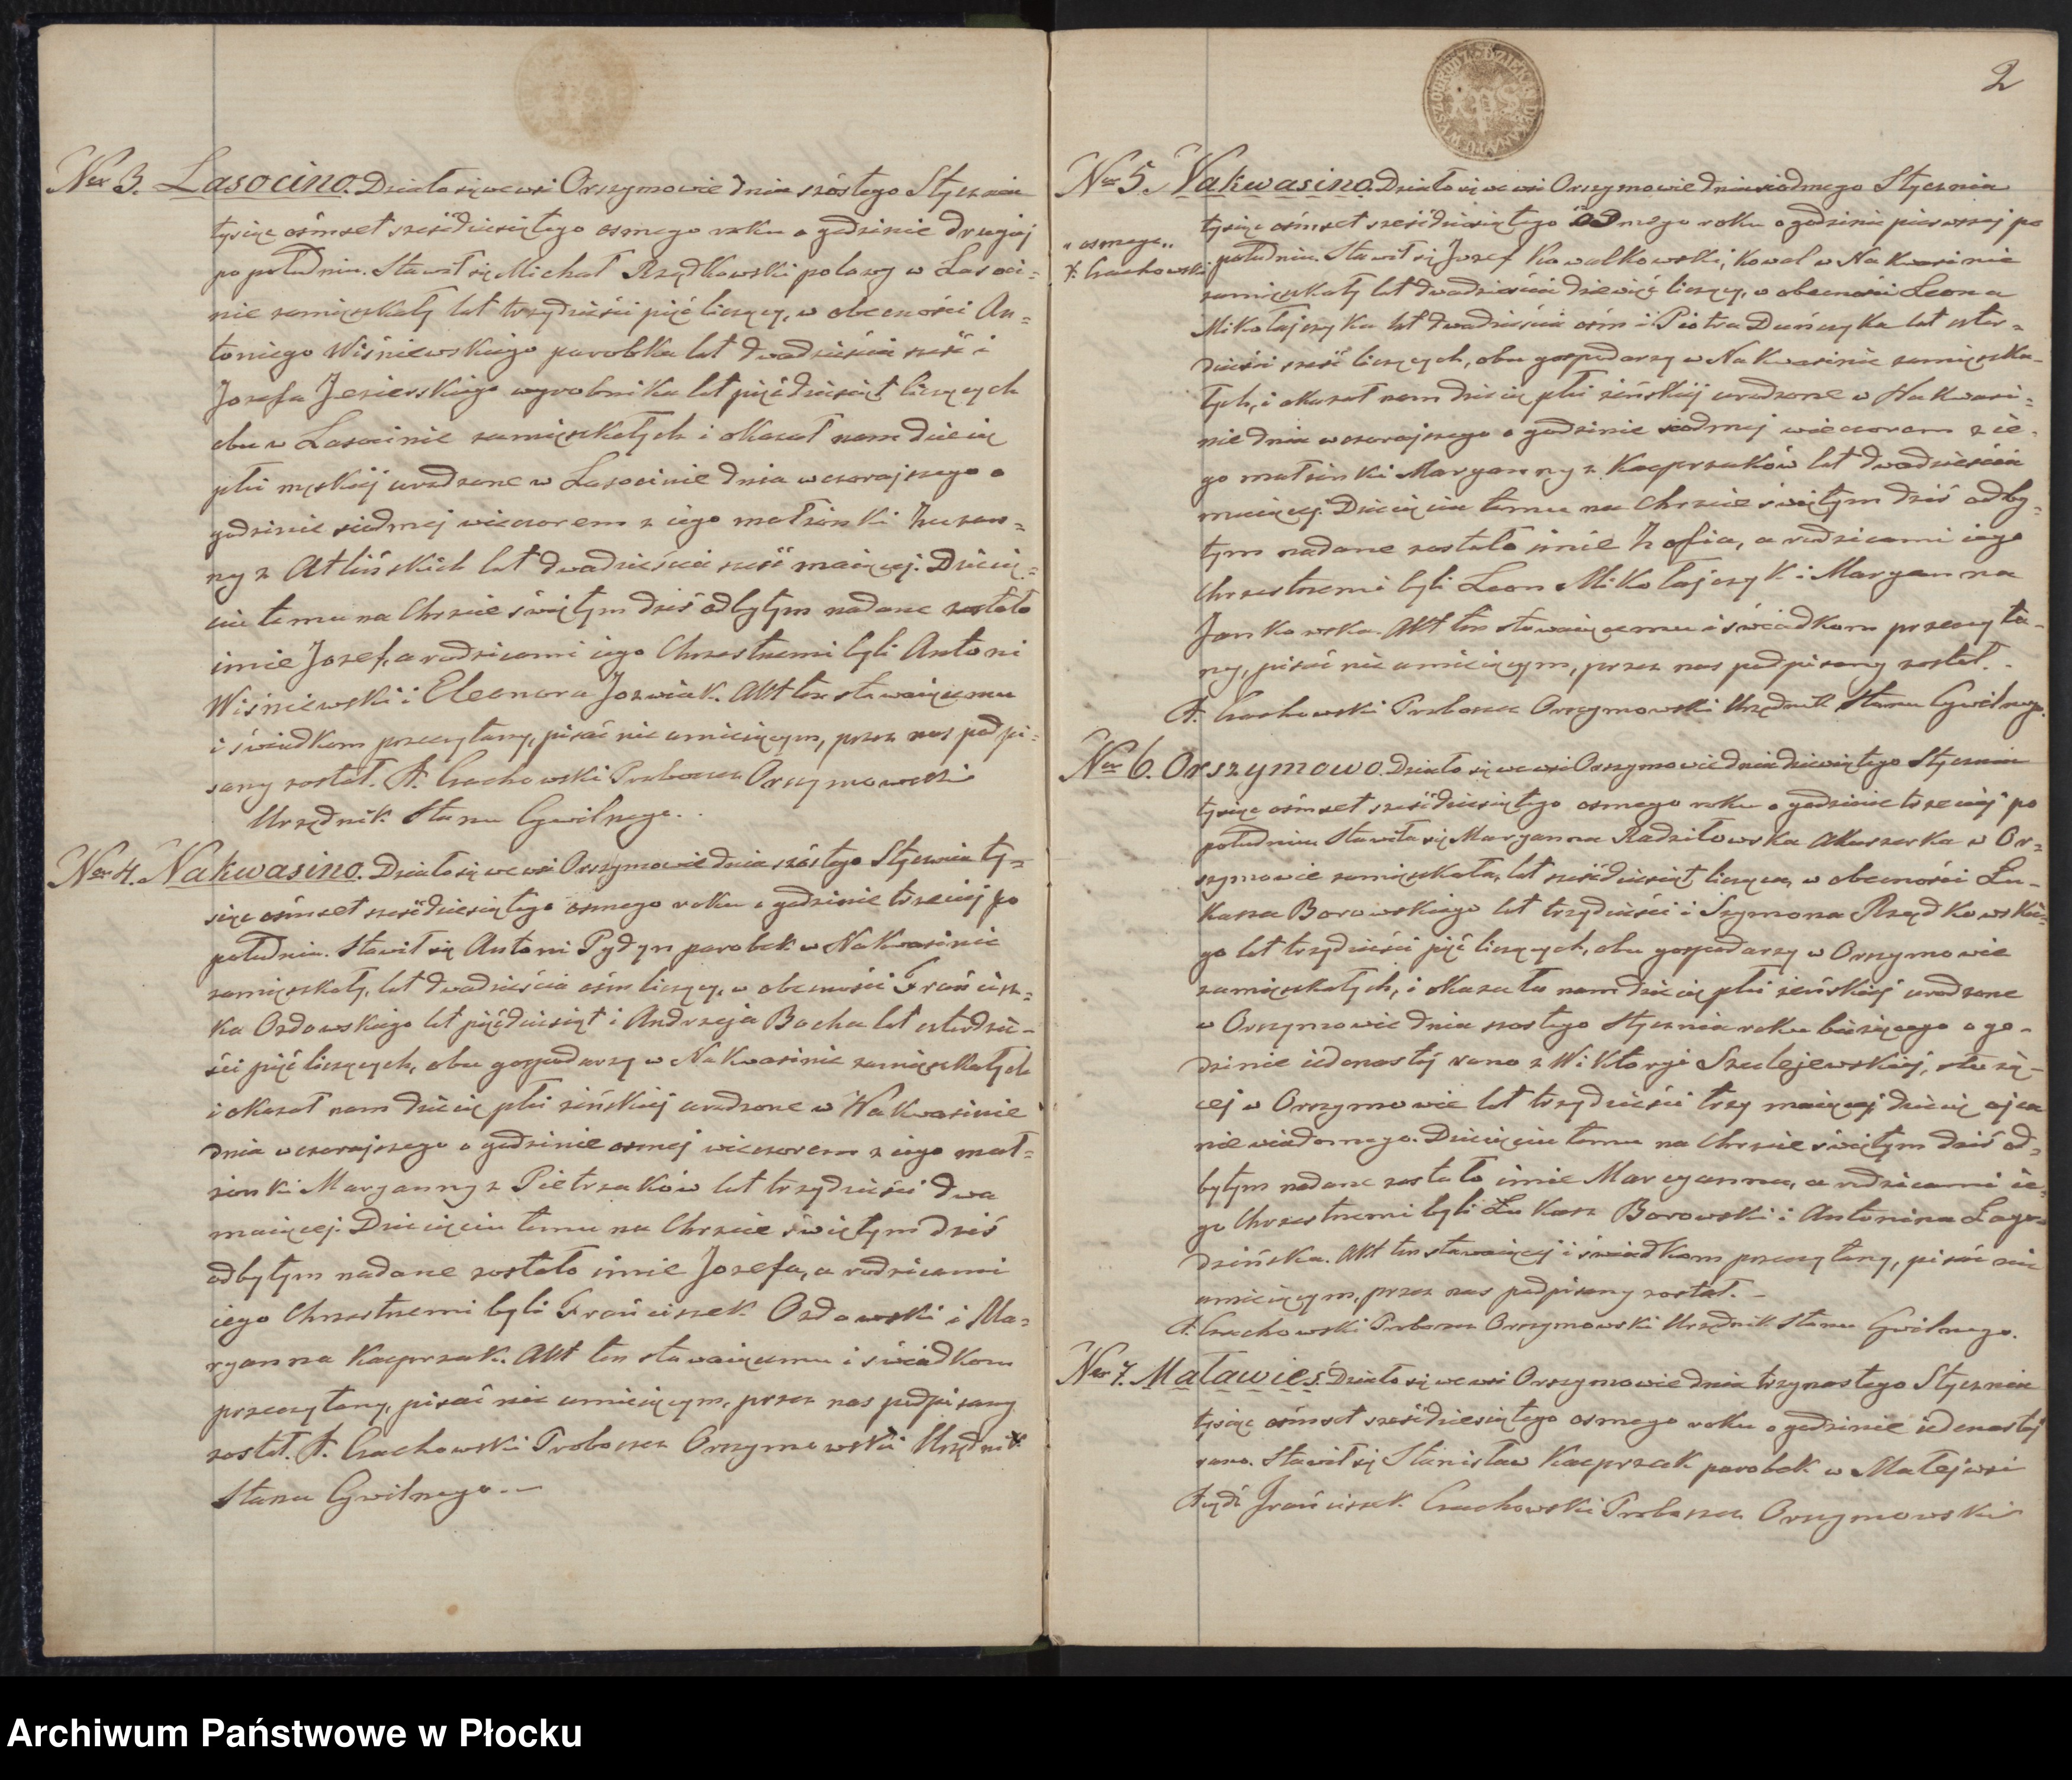 Ner 3. Lasocino. Działo się we wsi Orszymowie dnia szóstego Stycznia
tysiąc ośmset sześćdziesiątego osmego roku o godzinie drugiej
po południu. Stawił się Michał Rzędkowski polowy w Lasoci=
nie zamięszkały lat trzydzieści pięć liczący, w obecności An=
toniego Wiśniewskiego parobka lat dwadzieścia sześć i
Jozefa Jezierskiego wyrobnika lat pięćdziesiąt liczących
obu w Lasocinie zamięszkałych i okazał nam dziecię
płci męzkiéj urodzone w Lasocinie dnia wczorajszego o
godzinie siodmej wieczorem z iego małżonki Zuzan=
ny z Atlińskich lat dwadzieścia sześć maiącej. Dziecię=
ciu temu na Chrzcie świętym dziś odbytym nadane zostało
imie Jozef, a rodzicami iego Chrzestnemi byli Antoni
Wiśniewski i Eleonora Jozwiak. Akt ten stawaiącemu
i świadkom przeczytany, pisać nie umieiącym, przez nas podpi=
sany został. F. Czachowski Proboszcz Orszymowski
Urzędnik Stanu Cywilnego.
Ner 4. Nakwasino. Działo się we wsi Orszymowie dnia szóstego Stycznia ty=
siąc ośmset sześćdziesiątego osmego roku o godzinie trzeciej po
południu. Stawił się Antoni Pydyn parobek w Nakwasinie
zamięszkały, lat dwadzieścia ośm liczący, w obecności Frańcisz=
ka Ozdowskiego lat pięćdziesiąt i Andrzeja Bacha lat czterdzie=
ści pięć liczących, obu gospodarzy w Nakwasinie zamięszkałych
i okazał nam dziecię płci żeńskiej urodzone w Nakwasinie
dnia wczorajszego o godzinie osmej wieczorem z iego mał=
żonki Maryanny z Pietrzaków lat trzydzieści dwa
maiącej. Dziecięciu temu na Chrzcie świętym dziś
odbytym nadane zostało imie Jozefa, a rodzicami
iego Chrzestnemi byli Frańciszek Ozdowski i Ma=
ryanna Kacprzak. Akt ten stawaiącemu i świadkom
przeczytany, pisać nie umieiącym, przez nas podpisany
został. F. Czachowski Proboszcz Orszymowski Urzędnik
Stanu Cywilnego.
2
Ner 5. Nakwasino. Działo się we wsi Orszymowie dnia siodmego Stycznia
tysiąc ośmset sześćdziesiątego roku o godzinie pierwszej po
„osmego„
F. Czachowski
południu. Stawił się Jozef Kowalkowski, Kowal w Nakwasinie
zamięszkały lat dwadzieścia dziewięć liczący, w obecności Leona
Mikołajczyka lat dwadzieścia ośm i Piotra Duńczyka lat czter=
dzieści sześć liczących, obu gospodarzy w Nakwasinie zamięszka=
łych, i okazał nam dziecię płci żeńskiej urodzone w Nakwasi=
nie dnia wczorajszego o godzinie siodmej wieczorem z ie=
go małżonki Maryanny z Kacprzaków lat dwadzieścia
maiącej. Dziecięciu temu na Chrzcie świętym dziś odby=
tym nadane zostało imie Zofia, a rodzicami iego
Chrzestnemi byli Leon Mikołajczyk i Maryanna
Jankowska. Akt ten stawaiącemu i świadkom przeczyta=
ny, pisać nie umieiącym, przez nas podpisany został.
F. Czachowski Proboszcz Orszymowski Urzędnik Stanu Cywilnego.
Ner 6. Orszymowo. Działo się we wsi Orszymowie dnia dziewiątego Stycznia
tysiąc ośmset sześćdziesiątego osmego roku o godzinie trzeciej po
południu. Stawiła się Maryanna Radziłowska Akuszerka w Or=
szymowie zamięszkała, lat sześćdziesiąt licząca, w obecności Łu=
kasza Borowskiego lat trzydzieści i Szymona Rzędkowskie=
go lat trzydzieści pięć liczących, obu gospodarzy w Orszymowie
zamięszkałych, i okazała nam dziecię płci żeńskiej urodzone
w Orszymowie dnia szostego Stycznia roku bieżącego o go=
dzinie iedenastej rano z Wiktoryi Szulejewskiej, służą=
cej w Orszymowie lat trzydzieści trzy maiącej dziecię ojca
niewiadomego. Dziecięciu temu na Chrzcie świętym dziś od=
bytym nadane zostało imie Maryanna, a rodzicami ie=
go Chrzestnemi byli Łukasz Borowski i Antonina Łago=
dzińska. Akt ten stawaiącej i świadkom przeczytany, pisać nie
umieiącym, przez nas podpisany został.
F. Czachowski Proboszcz Orszymowski Urzędnik Stanu Cywilnego.
Ner 7. Matawieś. Działo się we wsi Orszymowie dnia trzynastego Stycznia
tysiąc ośmset sześćdziesiątego osmego roku o godzinie iedenastej
rano. Stawił się Stanisław Kacprzak parobek w Małejwsi
Xiądz Frańciszek Czachowski Proboszcz Orszymowski
Archiwum Państwowe w Płocku